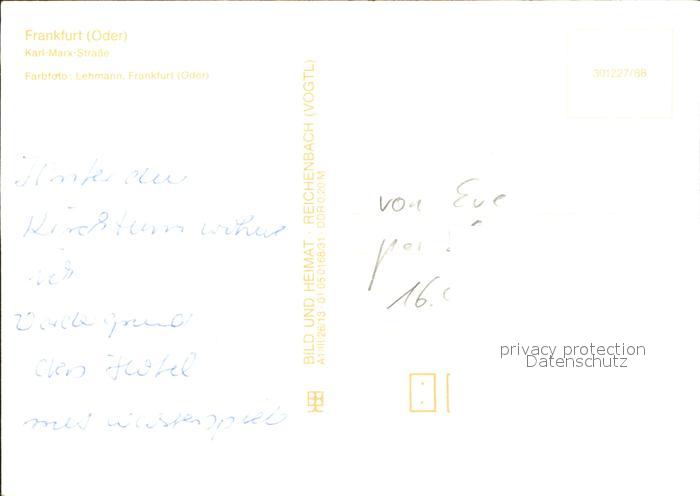 Frankfurt (Oder)
Karl-Marx-Straße
Farbfoto: Lehmann, Frankfurt (Oder)
301227/88
BILD UND HEIMAT · REICHENBACH (VOGTL)
A1/III/26/13 · 01 05 0168/31 · DDR 0,20 M
Hinter dem
Kirchturm
ich
Vordergrund
das Hotel
von Eve
16.
privacy protection
Datenschutz